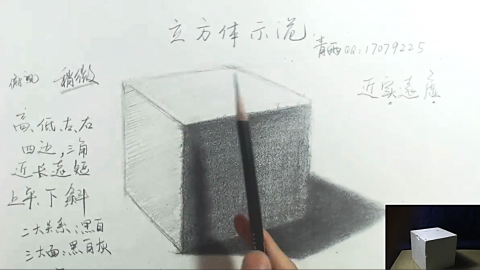 立方体示范
青西QQ:17079225
俯视 稍微
近实远虚
高、低、左、右
四边,三角
近长远短
上平下斜
二大关系:黑白
三大面:黑白灰